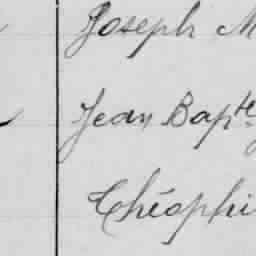 Joseph M
Jean Bapte
Théophi